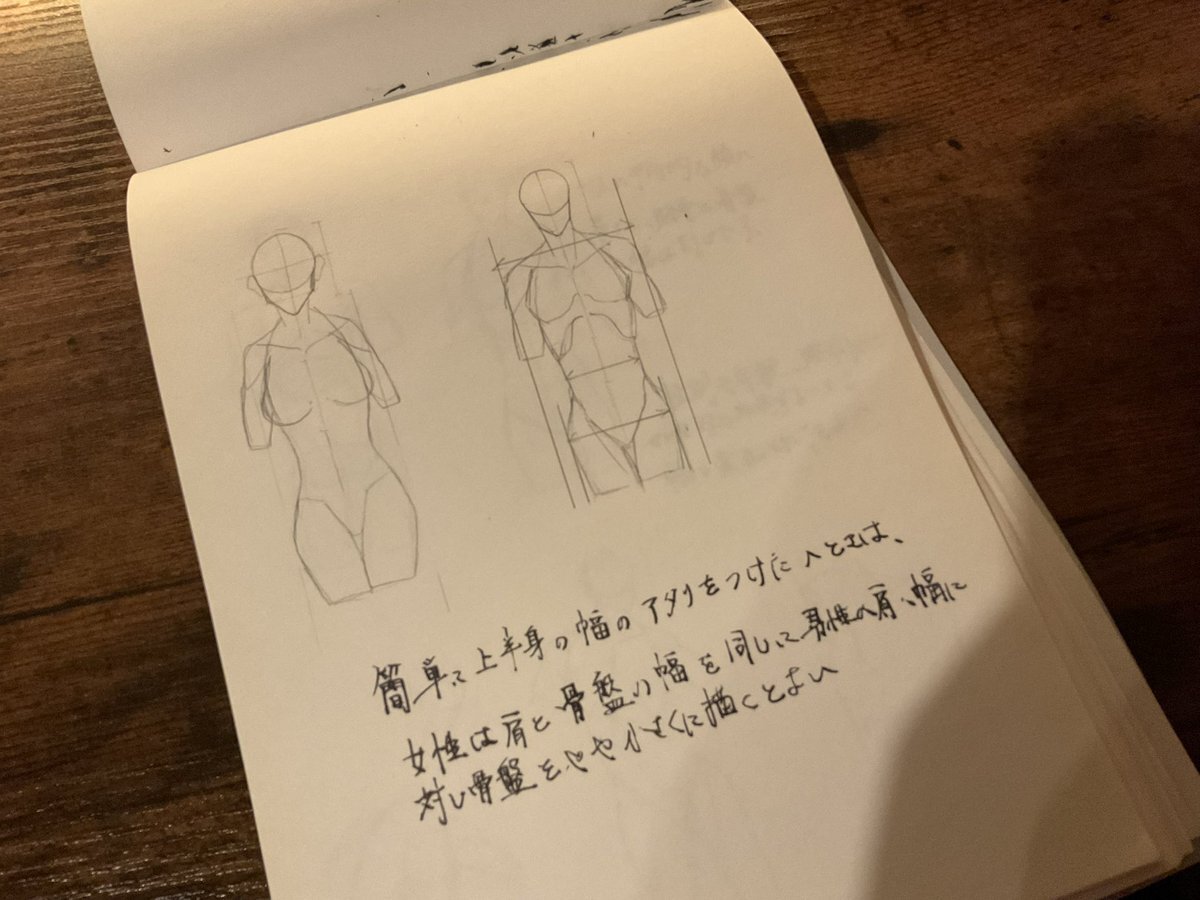 簡単に上半身の幅のアタリをつけたいときは、
女性は肩と骨盤の幅を同じに男性の肩の幅に
対し骨盤をやや小さくに描くとよい